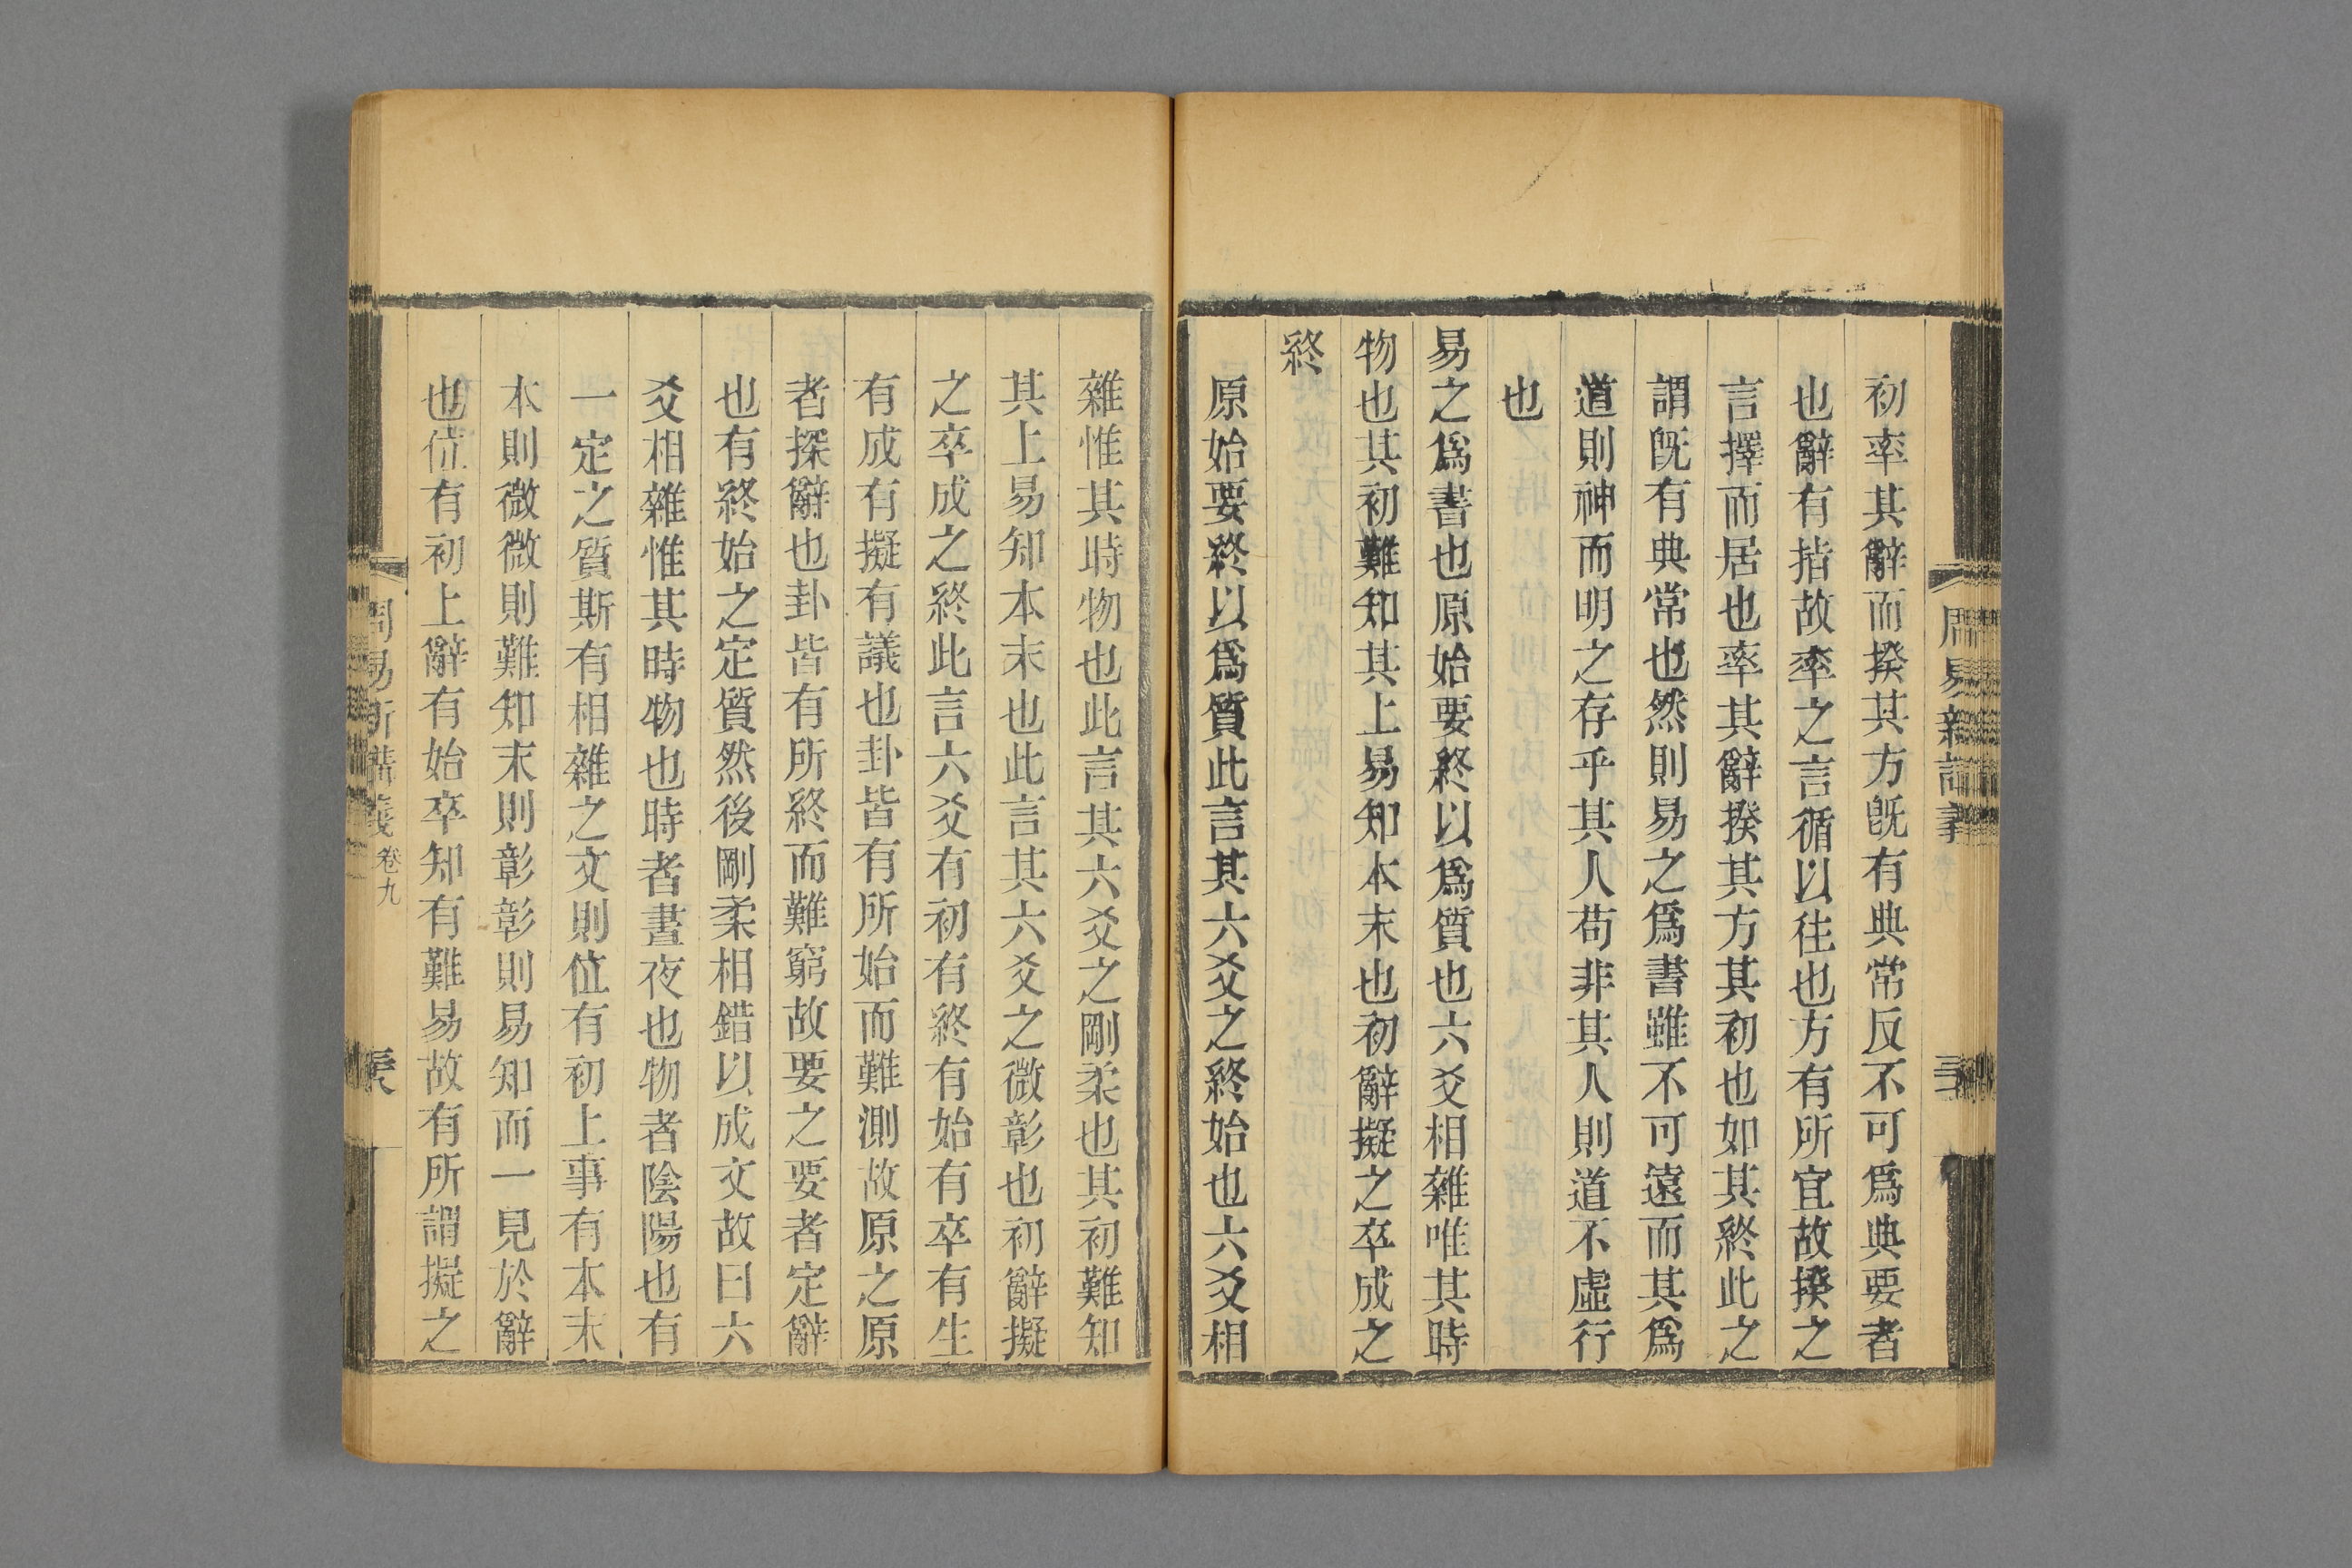 初率其辭而揆其方既有典常反不可爲典要者
也辭有指故率之言循以往也方有所宜故揆之
言擇而居也率其辭揆其方其初也如其終此之
謂既有典常也然則易之爲書雖不可遠而其爲
道則神而明之存乎其人苟非其人則道不虛行
也
易之爲書也原始要終以爲質也六爻相雜唯其時
物也其初難知其上易知本末也初辭擬之卒成之
終
原始要終以爲質此言其六爻之終始也六爻相
雜惟其時物也此言其六爻之剛柔也其初難知
其上易知本末也此言其六爻之微彰也初辭擬
之卒成之終此言六爻有初有終有始有卒有生
有成有擬有議也卦皆有所始而難測故原之原
者探辭也卦皆有所終而難窮故要之要者定辭
也有終始之定質然後剛柔相錯以成文故曰六
爻相雜惟其時物也時者晝夜也物者陰陽也有
一定之質斯有相雜之文則位有初上事有本末
本則微微則難知末則彰彰則易知而一見於辭
也位有初上辭有始卒知有難易故有所謂擬之
周易新講義 卷九